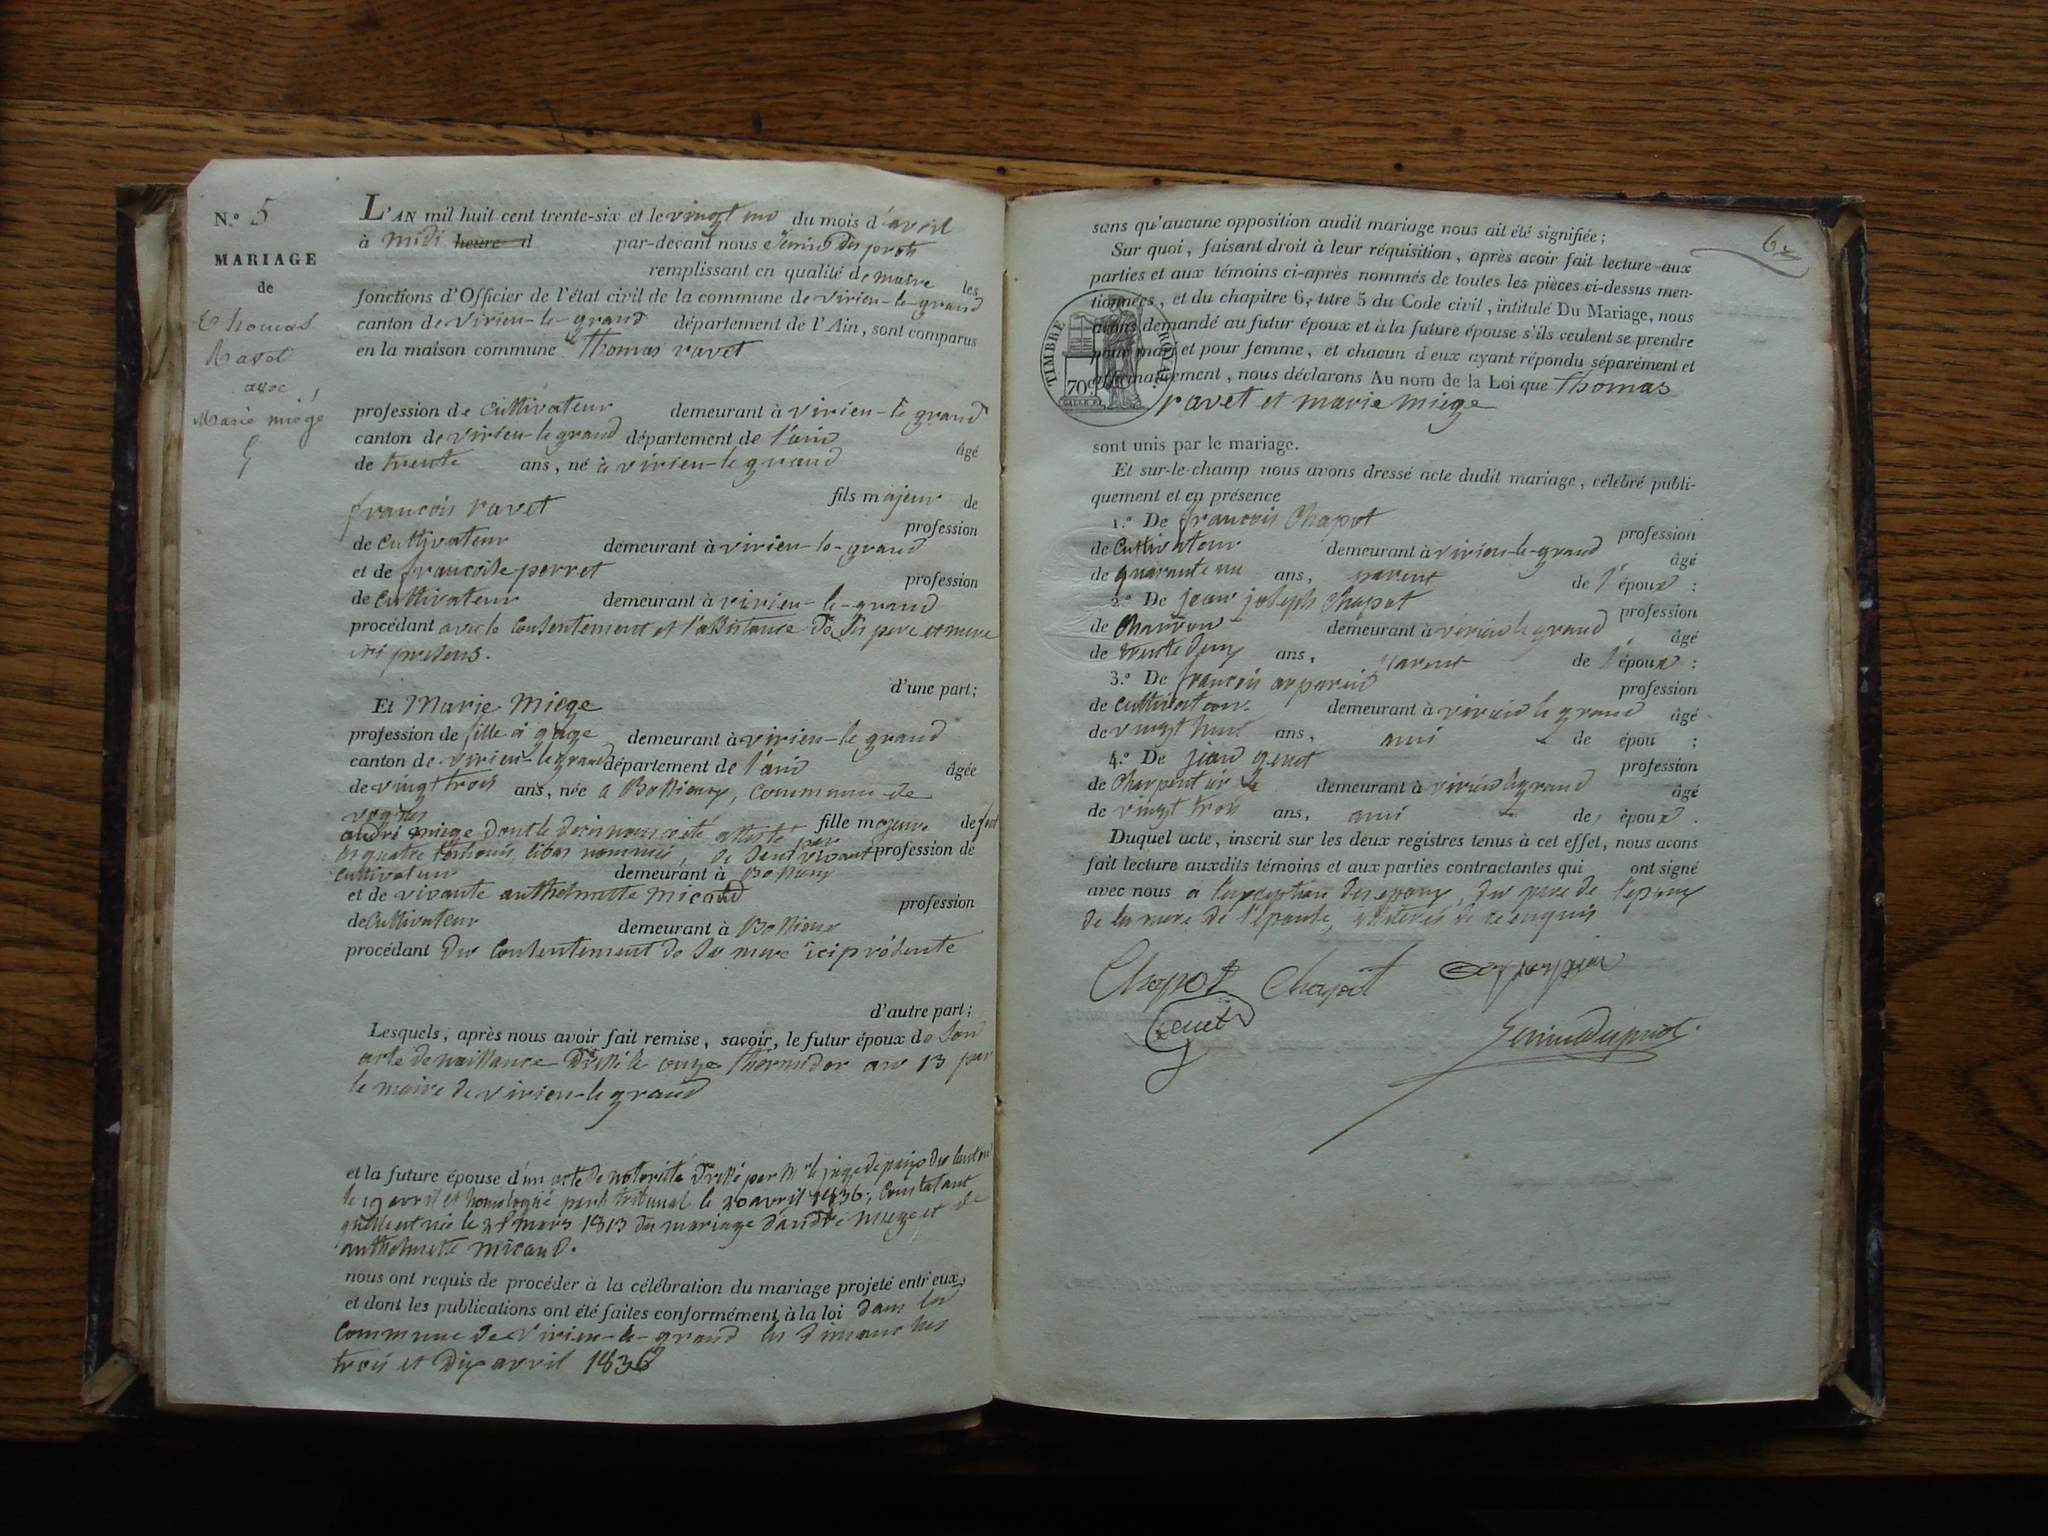 N.º 5
MARIAGE
de
Thomas
Ravet
avec
Marie miège
L'AN mil huit cent trente-six et le vingt un du mois d'avril
à midi heure d par-devant nous
remplissant en qualité de maire les
fonctions d'Officier de l'état civil de la commune de virieu-le-grand
canton de virieu-le-grand département de l'Ain, sont comparus
en la maison commune Thomas ravet
profession de cultivateur demeurant à virieu-le-grand
canton de virieu-le-grand département de l'ain âgé
de trente ans, né à virieu-le-grand
fils majeur de
françois ravet profession
de cultivateur demeurant à virieu-le-grand
et de francoise perret profession
de cultivateur demeurant à virieu-le-grand
procédant avec le consentement et l'assistance de ses pere et mere
ici presens.
d'une part;
Et Marie Miège
profession de fille à gage demeurant à virieu-le-grand
canton de virieu-le-grand département de l'ain âgée
de vingt trois ans, née a Bossieux, commune de
vognes
fille majeure de feu
andré miège dont le deces nous a été attesté par
les quatre temoins bas nommés, de son vivant profession de
cultivateur demeurant à Bossieux
et de vivante anthelmette micaud profession
de cultivateur demeurant à Bossieux
procédant du consentement de sa mere ici présente
d'autre part;
Lesquels, après nous avoir fait remise, savoir, le futur époux de son
acte de naissance dressé le onze thermidor an 13 par
le maire de virieu-le-grand
et la future épouse d'un acte de notoriété dressé par Mr le juge de paix du canton
le 19 avril et homologué par le tribunal le 20 avril 1836, constatant
quelle est née le 28 mars 1813 du mariage d'andré miege et de
anthelmette micaud.
nous ont requis de procéder à la célébration du mariage projeté entr'eux,
et dont les publications ont été faites conformément à la loi dans la
commune de virieu-le-grand les dimanches
trois et dix avril 1836
6
sans qu'aucune opposition audit mariage nous ait été signifiée;
Sur quoi, faisant droit à leur réquisition, après avoir fait lecture aux
parties et aux témoins ci-après nommés de toutes les pièces ci-dessus men-
tionnées, et du chapitre 6, titre 5 du Code civil, intitulé Du Mariage, nous
avons demandé au futur époux et à la future épouse s'ils veulent se prendre
pour mari et pour femme, et chacun d'eux ayant répondu séparément et
affirmativement, nous déclarons Au nom de la Loi que Thomas
ravet et marie miege
TIMBRE ROYAL
70c
sont unis par le mariage.
Et sur-le-champ nous avons dressé acte dudit mariage, célébré publi-
quement et en présence
1.º De francois Chapot profession
de cultivateur demeurant à virieu-le-grand âgé
de quarante un ans, parent de l'époux :
2.º De jean joseph Chapot profession
de Charron demeurant à virieu le grand âgé
de trente deux ans, parent de l'époux :
3.º De francois profession
de cultivateur demeurant à virieu le grand âgé
de vingt huit ans, ami de épou ;
4.º De jean genet profession
de Charpentier demeurant à virieu le grand âgé
de vingt trois ans, ami de époux.
Duquel acte, inscrit sur les deux registres tenus à cet effet, nous avons
fait lecture auxdits témoins et aux parties contractantes qui ont signé
avec nous a l'exception des epoux, du pere de l'epoux
de la mere de l'épouse, illitérés de ce enquis
Chapot Chapot
Genet